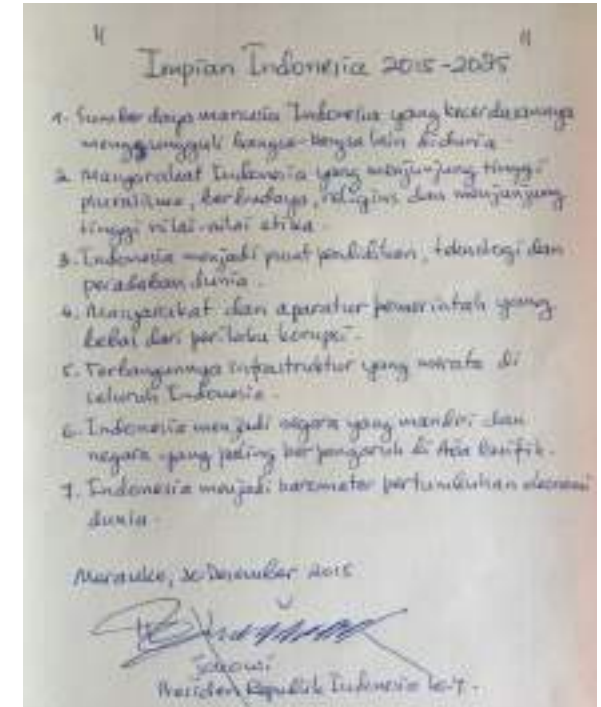 " "
Impian Indonesia 2015-2085
1. Sumber daya manusia Indonesia yang kecerdasannya
mengungguli bangsa-bangsa lain di dunia.
2. Masyarakat Indonesia yang menjunjung tinggi
pluralisme, berbudaya, religius dan menjunjung
tinggi nilai-nilai etika.
3. Indonesia menjadi pusat pendidikan, teknologi dan
peradaban dunia.
4. Masyarakat dan aparatur pemerintah yang
bebas dari perilaku korupsi.
5. Terbangunnya infrastruktur yang merata di
seluruh Indonesia.
6. Indonesia menjadi negara yang mandiri dan
negara yang paling berpengaruh di Asia Pasifik.
7. Indonesia menjadi barometer pertumbuhan ekonomi
dunia.
Merauke, 30 Desember 2015
Jokowi
Presiden Republik Indonesia ke-7.